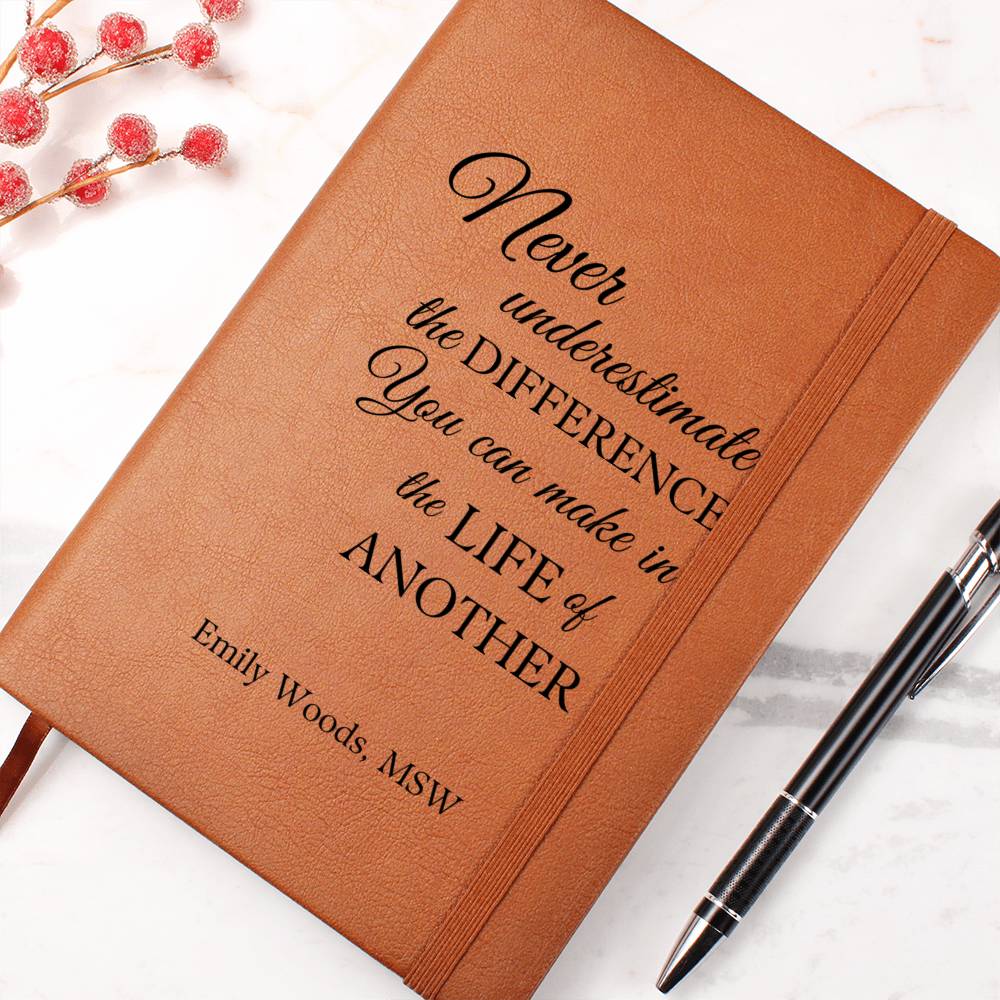 Never
underestimate
the DIFFERENCE
You can make in
the LIFE of
ANOTHER
Emily Woods, MSW